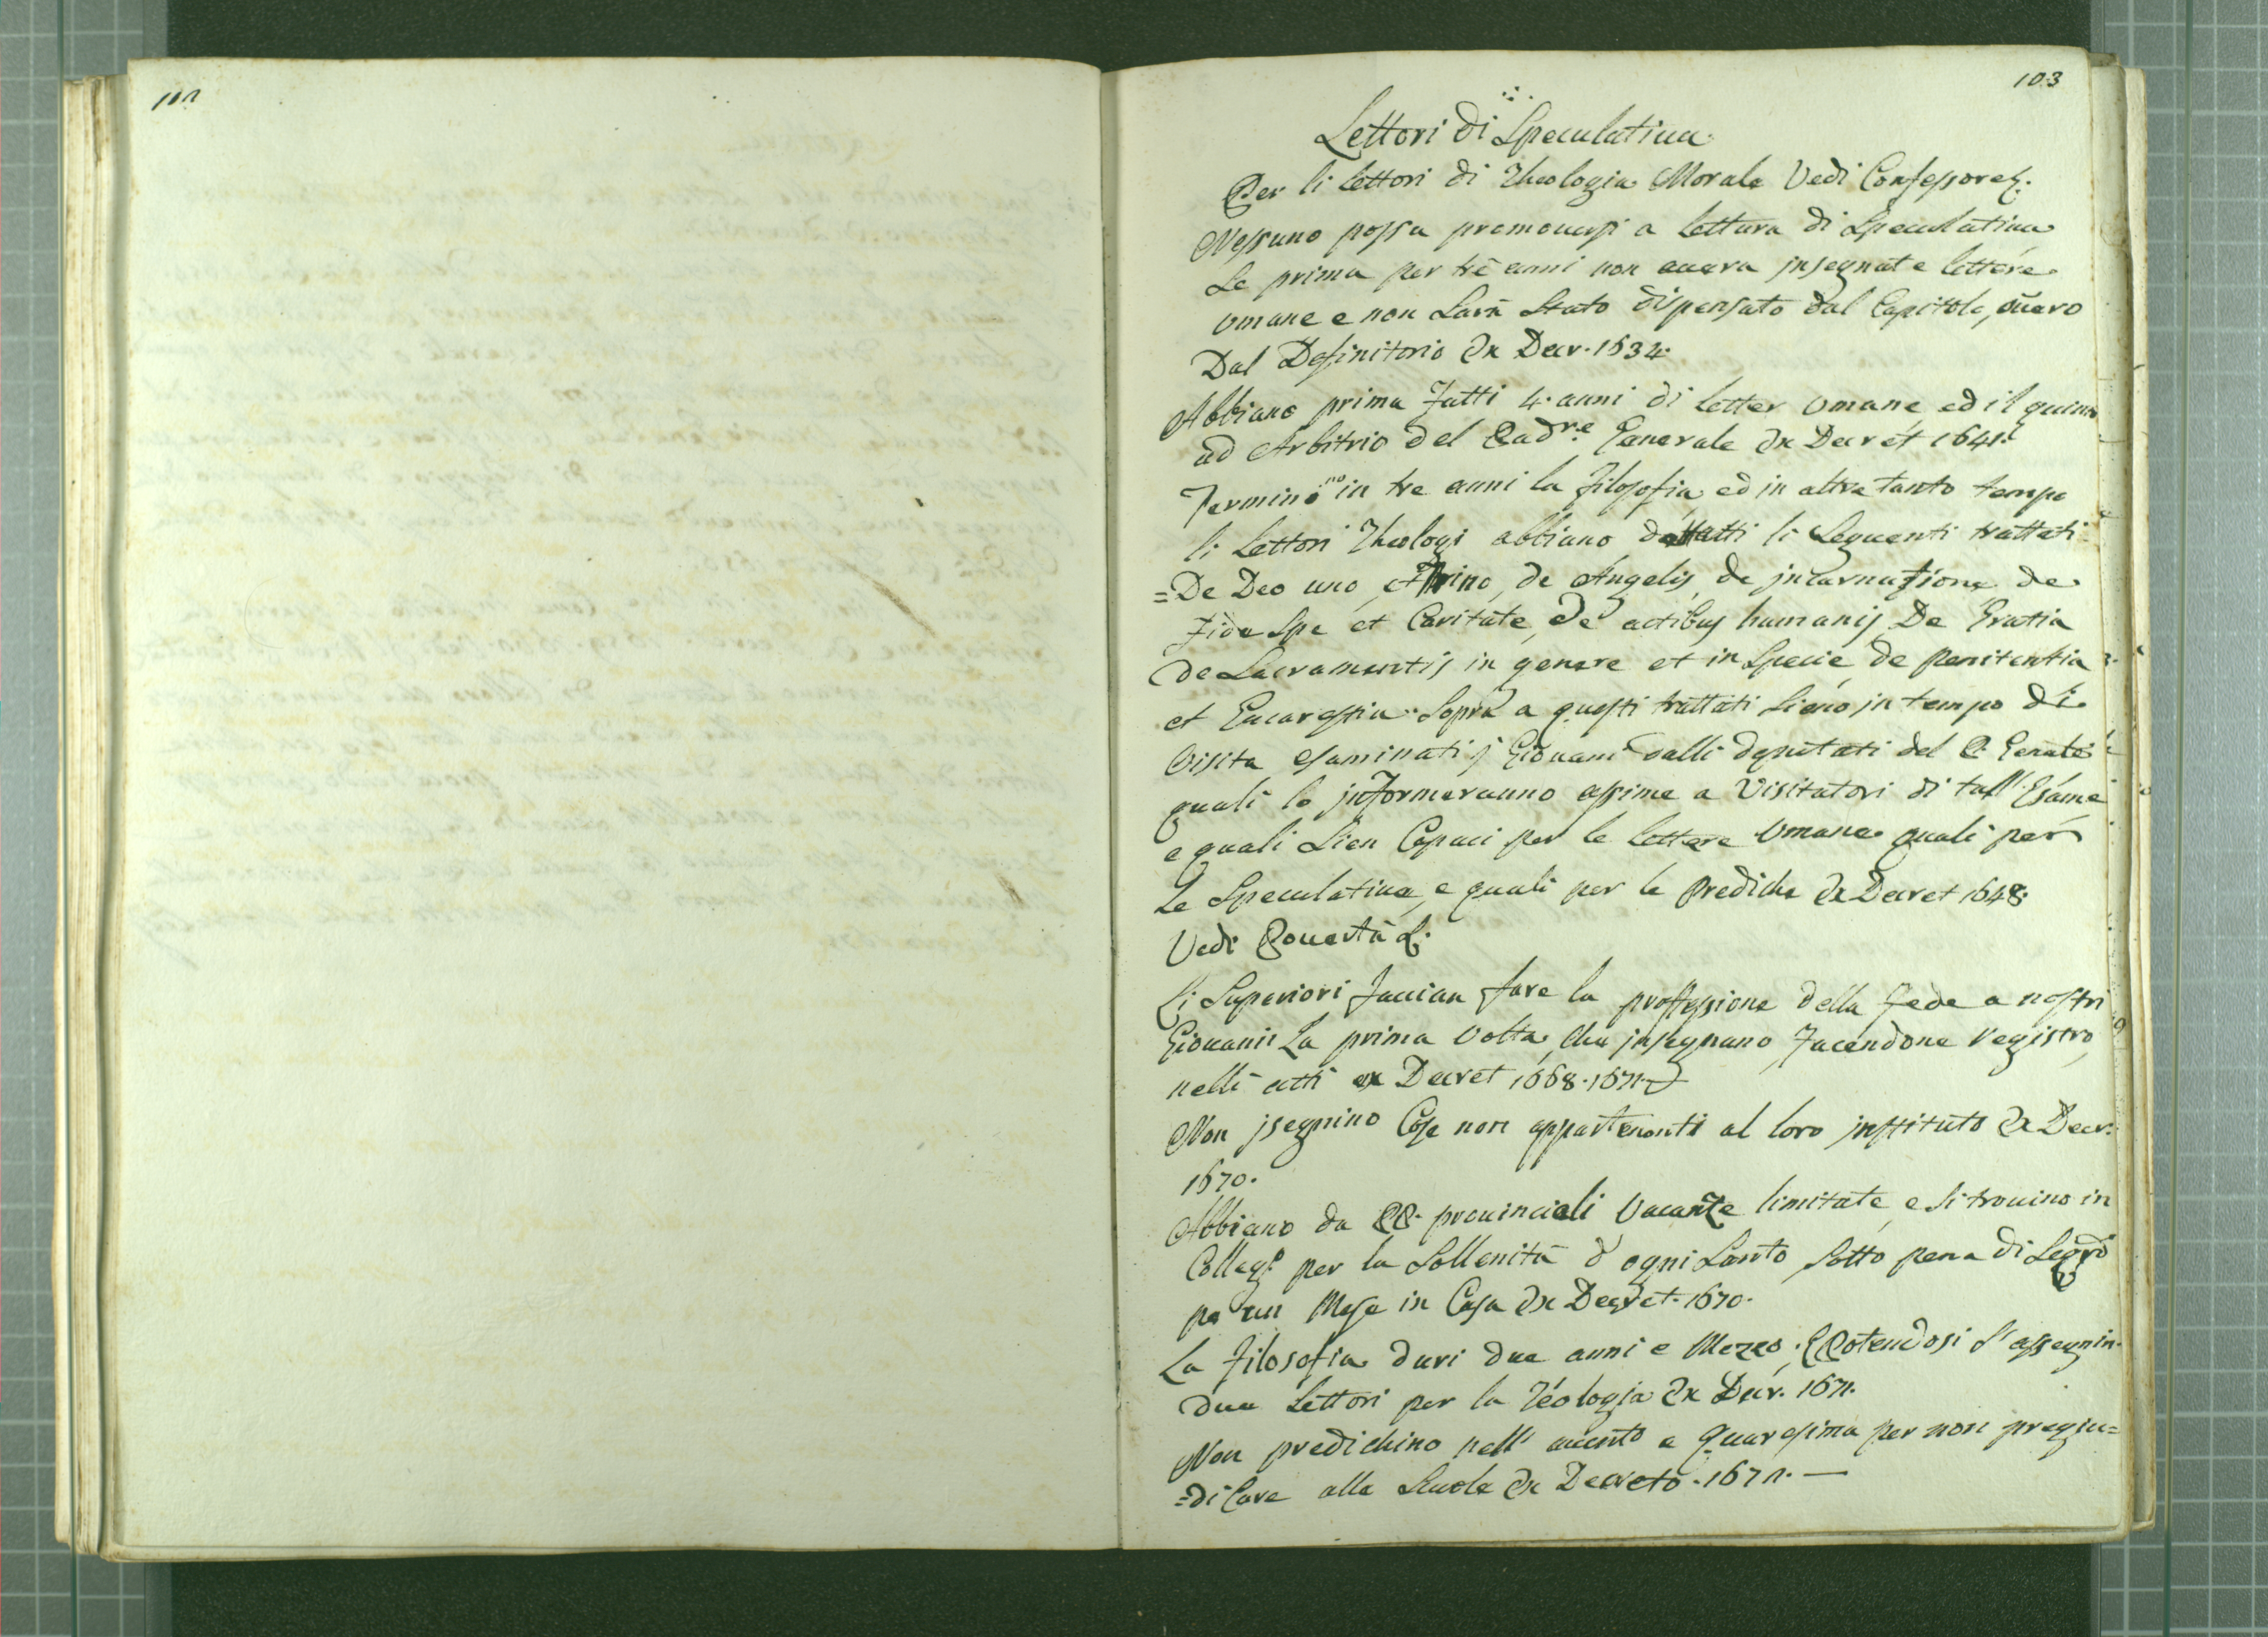 102
103
Lettori di Speculatiua
Per li lettori di Theologia Morale Vedi Confessore §.
Nessuno possa promouersi a lettura di Speculatiua
Se prima per trè anni non auera insegnate lettere
Umane e non Sarà Stato dispensato dal Capitolo, ouero
Dal Definitorio Ex Decr. 1634.
Abbiano prima Fatti 4. anni di Letter Umane ed il quinto
ad Arbitrio del Padre Generale Ex Decret 1641.
Termino.no in tre anni la filosofia, ed in altre tanto tempo
li Lettori Theologi abbiano dettatti li Seguenti trattati
=De Deo uno, et Trino, de Angelis, de incarnazione, de
Fide Spe et Caritate, de actibus humanis, De Gratia
de Sacramentis in genere et in Specie, de penitentia
et Eucarestia. Sopra a questi trattati Sieno in tempo di
Visita esaminati i Giouani dalli deputati del P. Genale
quali lo informeranno assime a Visitatori di tall' Esame
e quali Sien Capaci per le lettere Umane quali per
Le Speculatiue, e quali per le prediche Ex Decret 1648.
Vedi Pouertà §.
Li Superiori faccian fare la proffessione della fede a nostri
Giouani La prima Volta, che insegnano, Facendone registro
nelli atti ex Decret 1668. 1671.
Non isegnino Cose non appartenenti al loro instituto Ex Decr.
1670.
Abbiano da PP. prouinciali Vacanze limitate, e si trouino in
Collegi per la Sollenità d' ogni Santo Sotto pena di
per un Mese in Casa Ex Decret. 1670.
La filosofia duri due anni e Mezzo. E Potendosi S' assegnin
due Lettori per la Teologia Ex Decr. 1671.
Non predichino nell' auento e Quaresima per non pregiu=
=dicare alle Scuole Ex Decreto. 1672. —